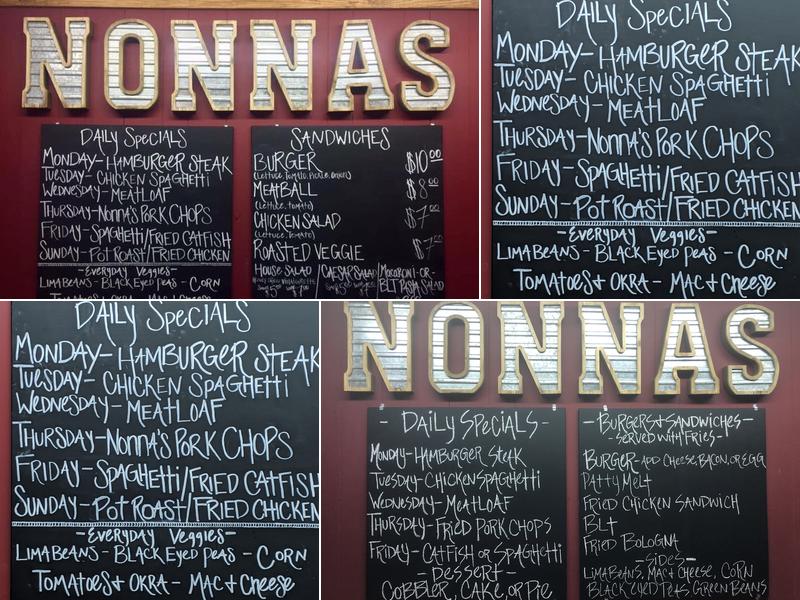 NONNAS
DAILY SPECIALS
MONDAY- HAMBURGER STEAK
TUESDAY- CHICKEN SPAGHETTI
WEDNESDAY- MEATLOAF
THURSDAY- NONNA'S PORK CHOPS
FRIDAY- SPAGHETTI/FRIED CATFISH
SUNDAY- POT ROAST/FRIED CHICKEN
-EVERYDAY VEGGIES-
LIMA BEANS - BLACK EYED PEAS - CORN
TOMATOES & OKRA - MAC & CHEESE
SANDWICHES
BURGER $10.00
(LETTUCE, TOMATO, PICKLE, ONIONS)
MEATBALL $8.00
(LETTUCE, TOMATO)
CHICKEN SALAD $7.00
(LETTUCE, TOMATO)
ROASTED VEGGIE $7.00
HOUSE SALAD / CAESAR SALAD / MACARONI - OR -
BLT PASTA SALAD
DAILY SPECIALS
MONDAY- HAMBURGER STEAK
TUESDAY- CHICKEN SPAGHETTI
WEDNESDAY- MEATLOAF
THURSDAY- NONNA'S PORK CHOPS
FRIDAY- SPAGHETTI/FRIED CATFISH
SUNDAY- POT ROAST/FRIED CHICKEN
-EVERYDAY VEGGIES-
LIMA BEANS - BLACK EYED PEAS - CORN
TOMATOES & OKRA - MAC & CHEESE
DAILY SPECIALS
MONDAY- HAMBURGER STEAK
TUESDAY- CHICKEN SPAGHETTI
WEDNESDAY- MEATLOAF
THURSDAY- NONNA'S PORK CHOPS
FRIDAY- SPAGHETTI/FRIED CATFISH
SUNDAY- POT ROAST/FRIED CHICKEN
-EVERYDAY VEGGIES-
LIMA BEANS - BLACK EYED PEAS - CORN
TOMATOES & OKRA - MAC & CHEESE
NONNAS
- DAILY SPECIALS -
MONDAY- HAMBURGER STEAK
TUESDAY- CHICKEN SPAGHETTI
WEDNESDAY- MEATLOAF
THURSDAY- FRIED PORK CHOPS
FRIDAY- CATFISH OR SPAGHETTI
- DESSERT -
COBBLER, CAKE, OR PIE
- BURGERS & SANDWICHES -
- SERVED WITH FRIES -
BURGER - ADD CHEESE, BACON, OR EGG
PATTY MELT
FRIED CHICKEN SANDWICH
BLT
FRIED BOLOGNA
- SIDES -
LIMA BEANS, MAC & CHEESE, CORN
BLACK EYED PEAS GREEN BEANS